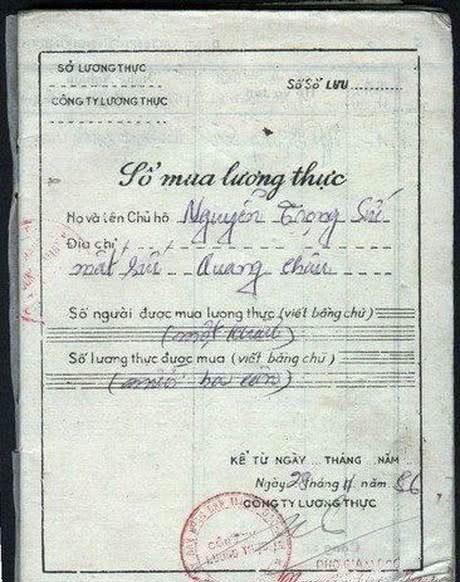 SỞ LƯƠNG THỰC
Số Sổ LƯU
CÔNG TY LƯƠNG THỰC
Sổ mua lương thực
Họ và tên Chủ hộ Nguyễn Trọng
Địa chỉ
Quang Châu
Số người được mua lương thực (viết bằng chữ)
(một
Số lương thực được mua (viết bằng chữ)
(mười ba cân)
KỂ TỪ NGÀY THÁNG NĂM
Ngày 28 tháng 11 năm 86
CÔNG TY LƯƠNG THỰC
CÔNG TY
LƯƠNG THỰC
PHÓ GIÁM ĐỐC